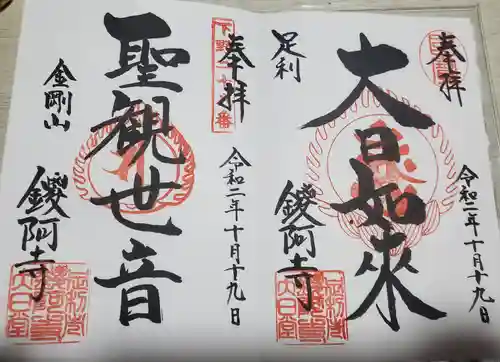 奉拝
大日如来
令和二年十月十九日
足利
鑁阿寺
奉拝
下野
番
聖観世音
令和二年十月十九日
金剛山
鑁阿寺